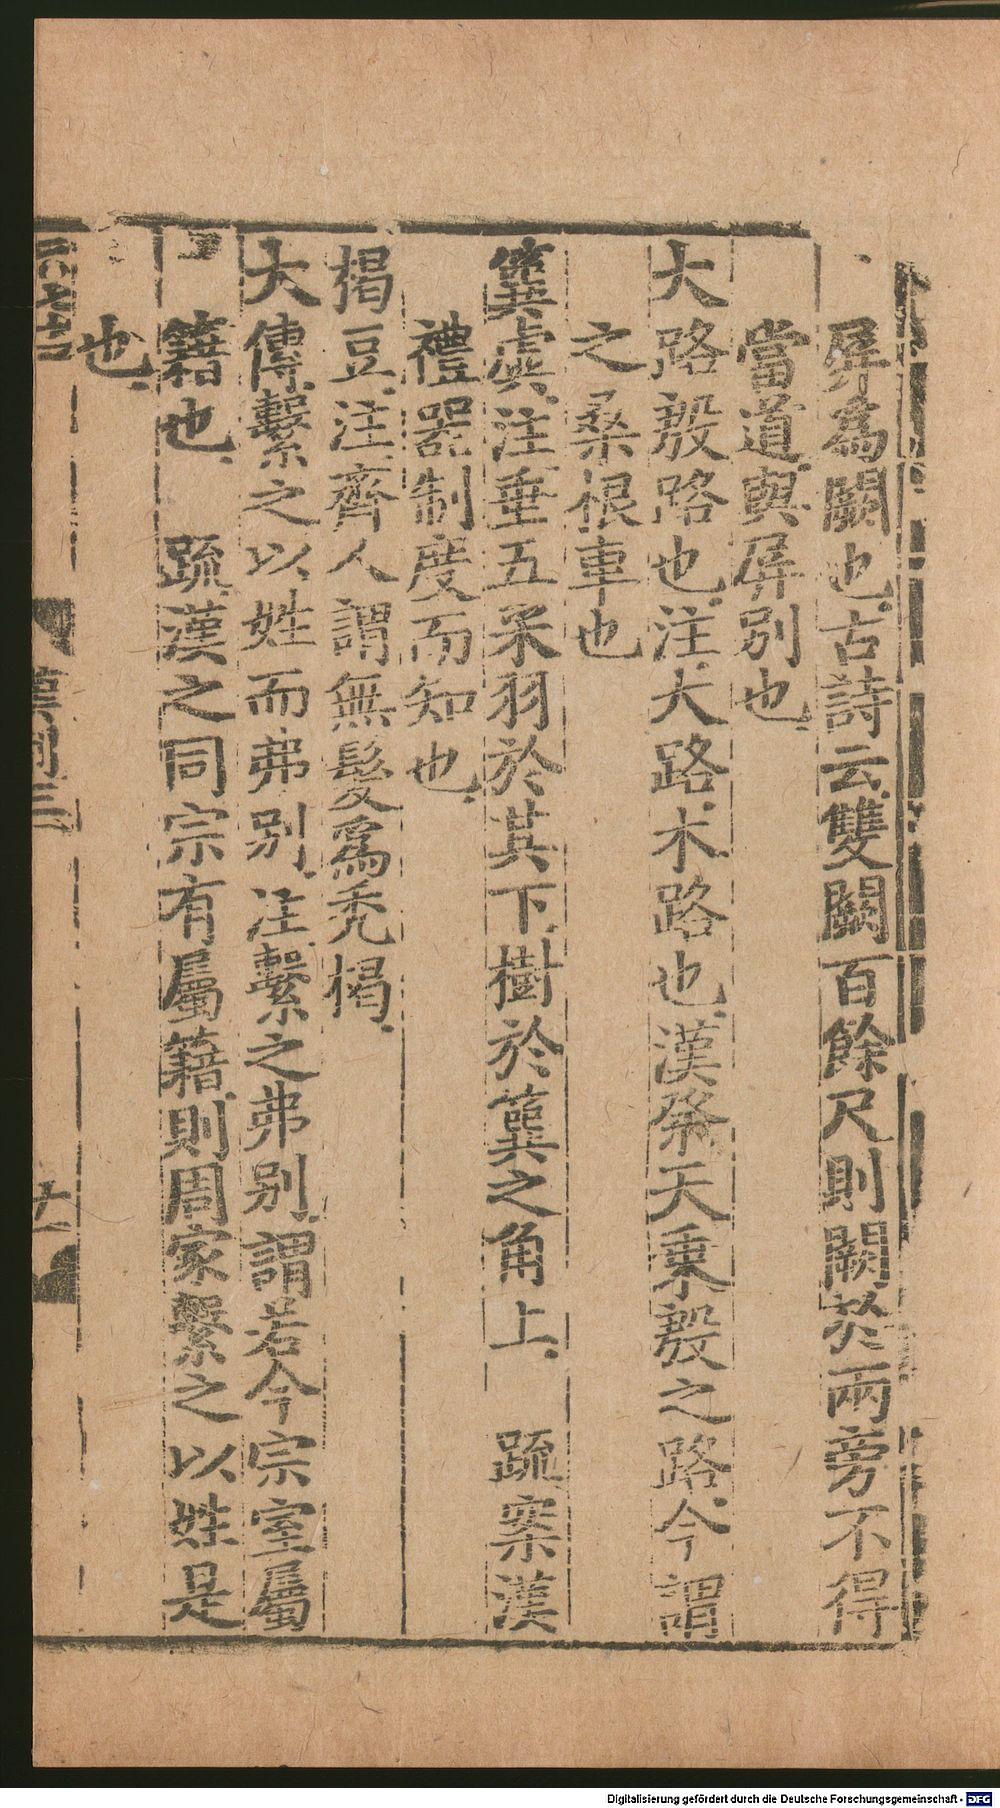 屏為闕也古詩云雙闕百餘尺則闕於兩旁不得
當道與屏别也
大路殷路也注大路木路也漢祭天乗殷之路今謂
之桑根車也
簨虡注垂五采羽於其下樹於簨之角上　疏案漢
禮器制度而知也
楬豆注齊人謂無髮為秃楬
大傳繫之以姓而弗别注繫之弗别謂若今宗室屬
籍也　疏漢之同宗有屬籍則周家繫之以姓是
也
漢制三
十一
Digitalisierung gefördert durch die Deutsche Forschungsgemeinschaft - DFG